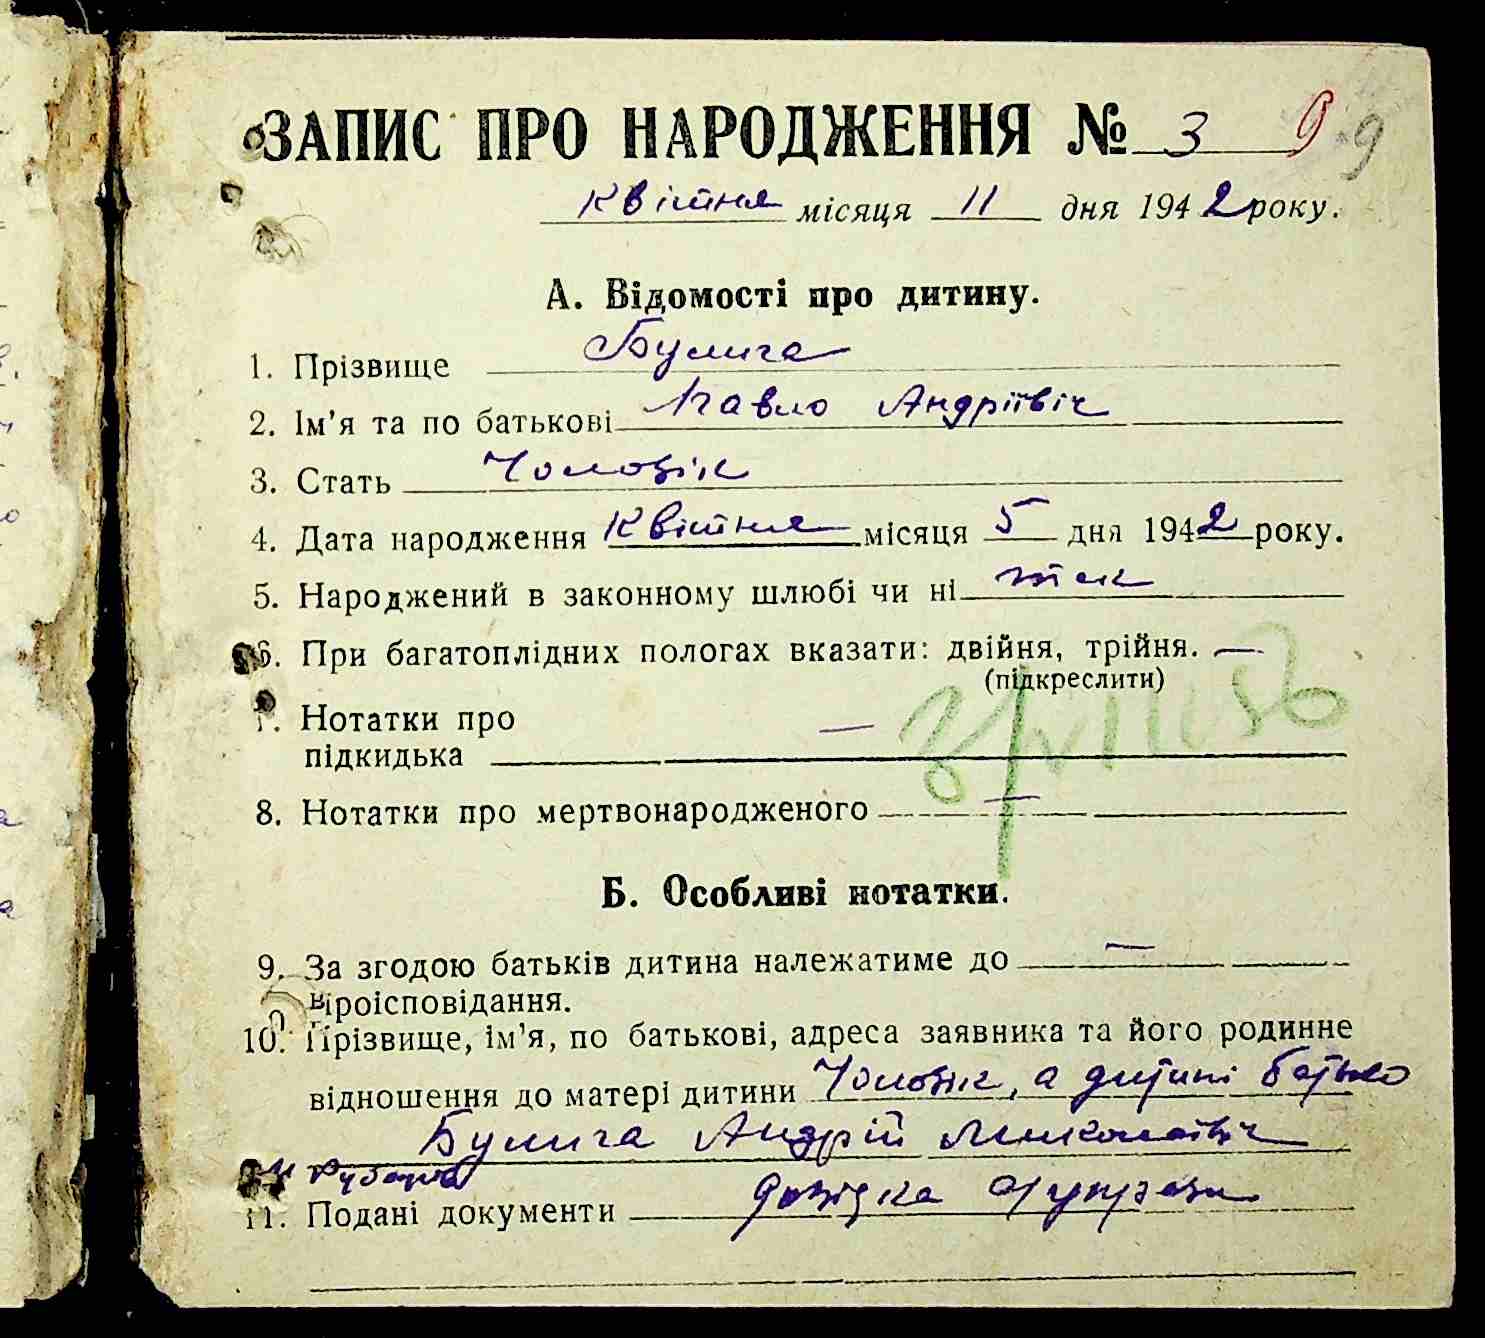 ЗАПИС ПРО НАРОДЖЕННЯ № 3 9 9
Квітня місяця 11 дня 1942 року.
А. Відомості про дитину.
1. Прізвище Булига
2. Ім'я та по батькові Павло Андріївіч
3. Стать Чоловік
4. Дата народження Квітня місяця 5 дня 1942 року.
5. Народжений в законному шлюбі чи ні так
6. При багатоплідних пологах вказати: двійня, трійня. —
(підкреслити)
7. Нотатки про —
підкидька
8. Нотатки про мертвонародженого —
Б. Особливі нотатки.
9. За згодою батьків дитина належатиме до —
віроісповідання.
10. Прізвище, ім'я, по батькові, адреса заявника та його родинне
відношення до матері дитини Чоловік, а дитині батько
Булига Андрій Миколаївіч
11. Подані документи довідка